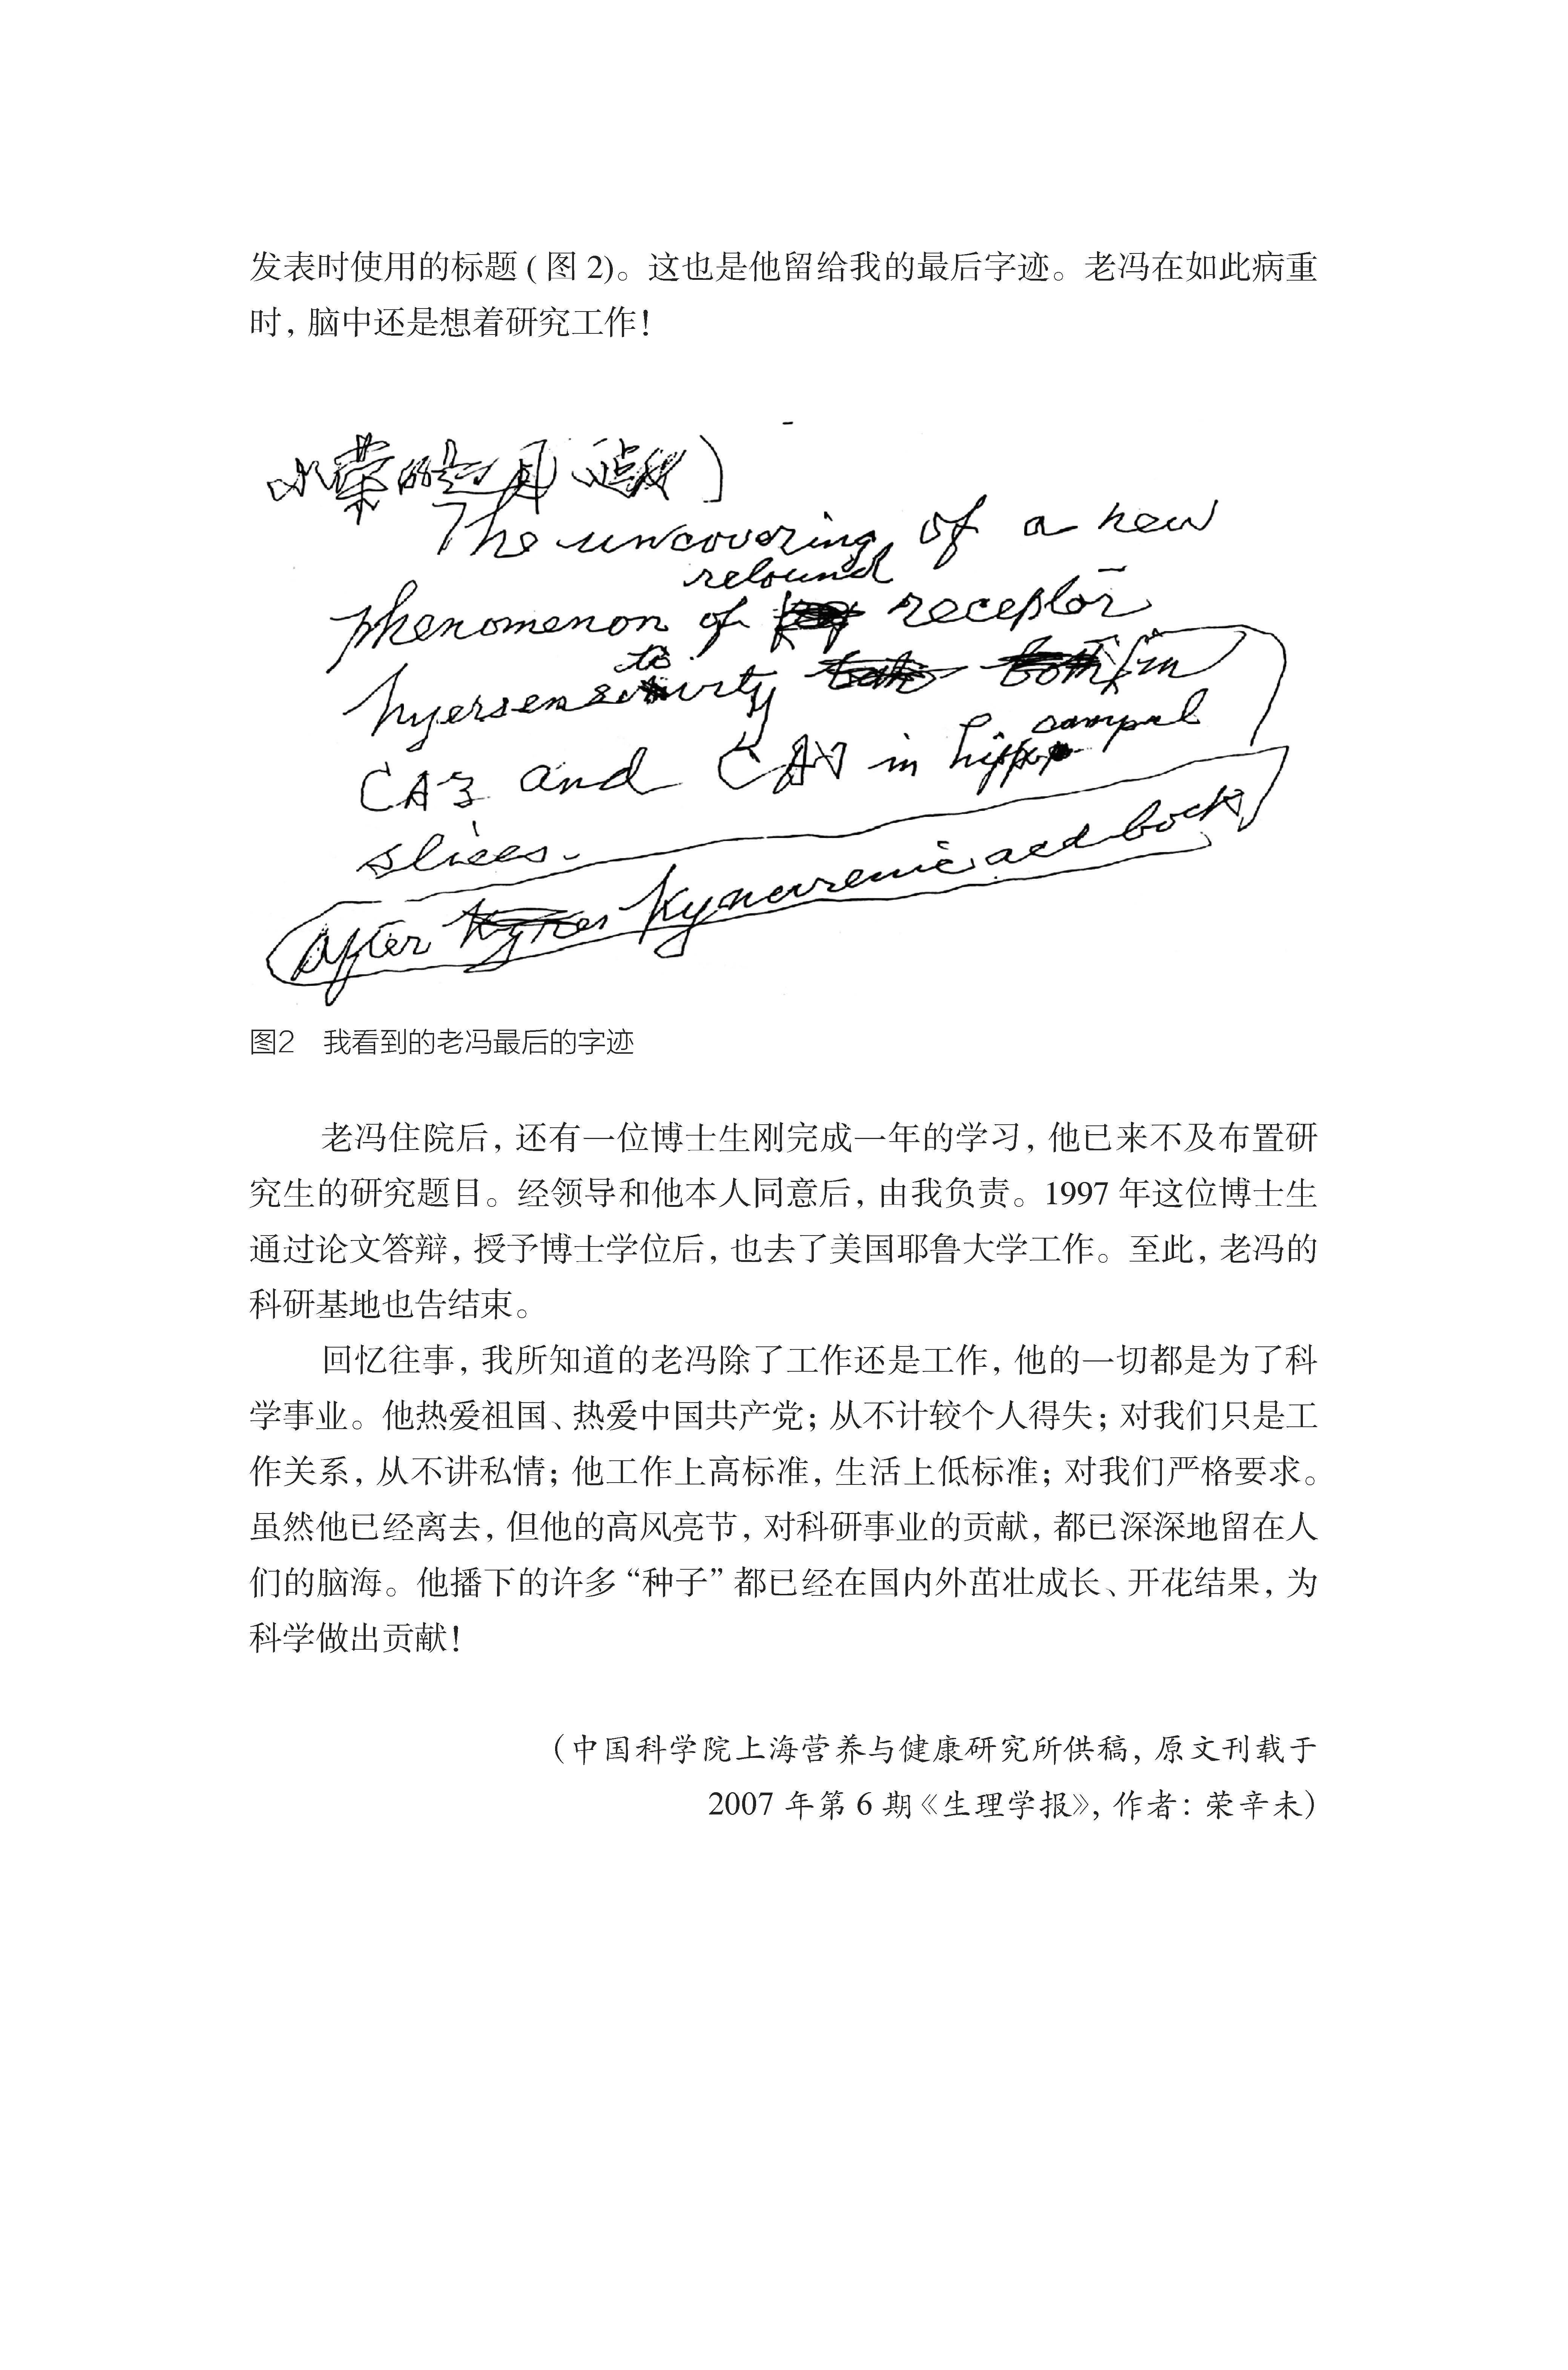 发表时使用的标题(图2)。这也是他留给我的最后字迹。老冯在如此病重
时,脑中还是想着研究工作!
小荣的
The uncovering of a new
rebound
phenomenon of receptor
ti
hyersensivity in
CA3 and CA1 in hippocampal
slices.
after Kynurenic acid bock
图2 我看到的老冯最后的字迹
老冯住院后,还有一位博士生刚完成一年的学习,他已来不及布置研
究生的研究题目。经领导和他本人同意后,由我负责。1997年这位博士生
通过论文答辩,授予博士学位后,也去了美国耶鲁大学工作。至此,老冯的
科研基地也告结束。
回忆往事,我所知道的老冯除了工作还是工作,他的一切都是为了科
学事业。他热爱祖国、热爱中国共产党;从不计较个人得失;对我们只是工
作关系,从不讲私情;他工作上高标准,生活上低标准;对我们严格要求。
虽然他已经离去,但他的高风亮节,对科研事业的贡献,都已深深地留在人
们的脑海。他播下的许多“种子”都已经在国内外茁壮成长、开花结果,为
科学做出贡献!
(中国科学院上海营养与健康研究所供稿,原文刊载于
2007年第6期《生理学报》,作者:荣辛未)